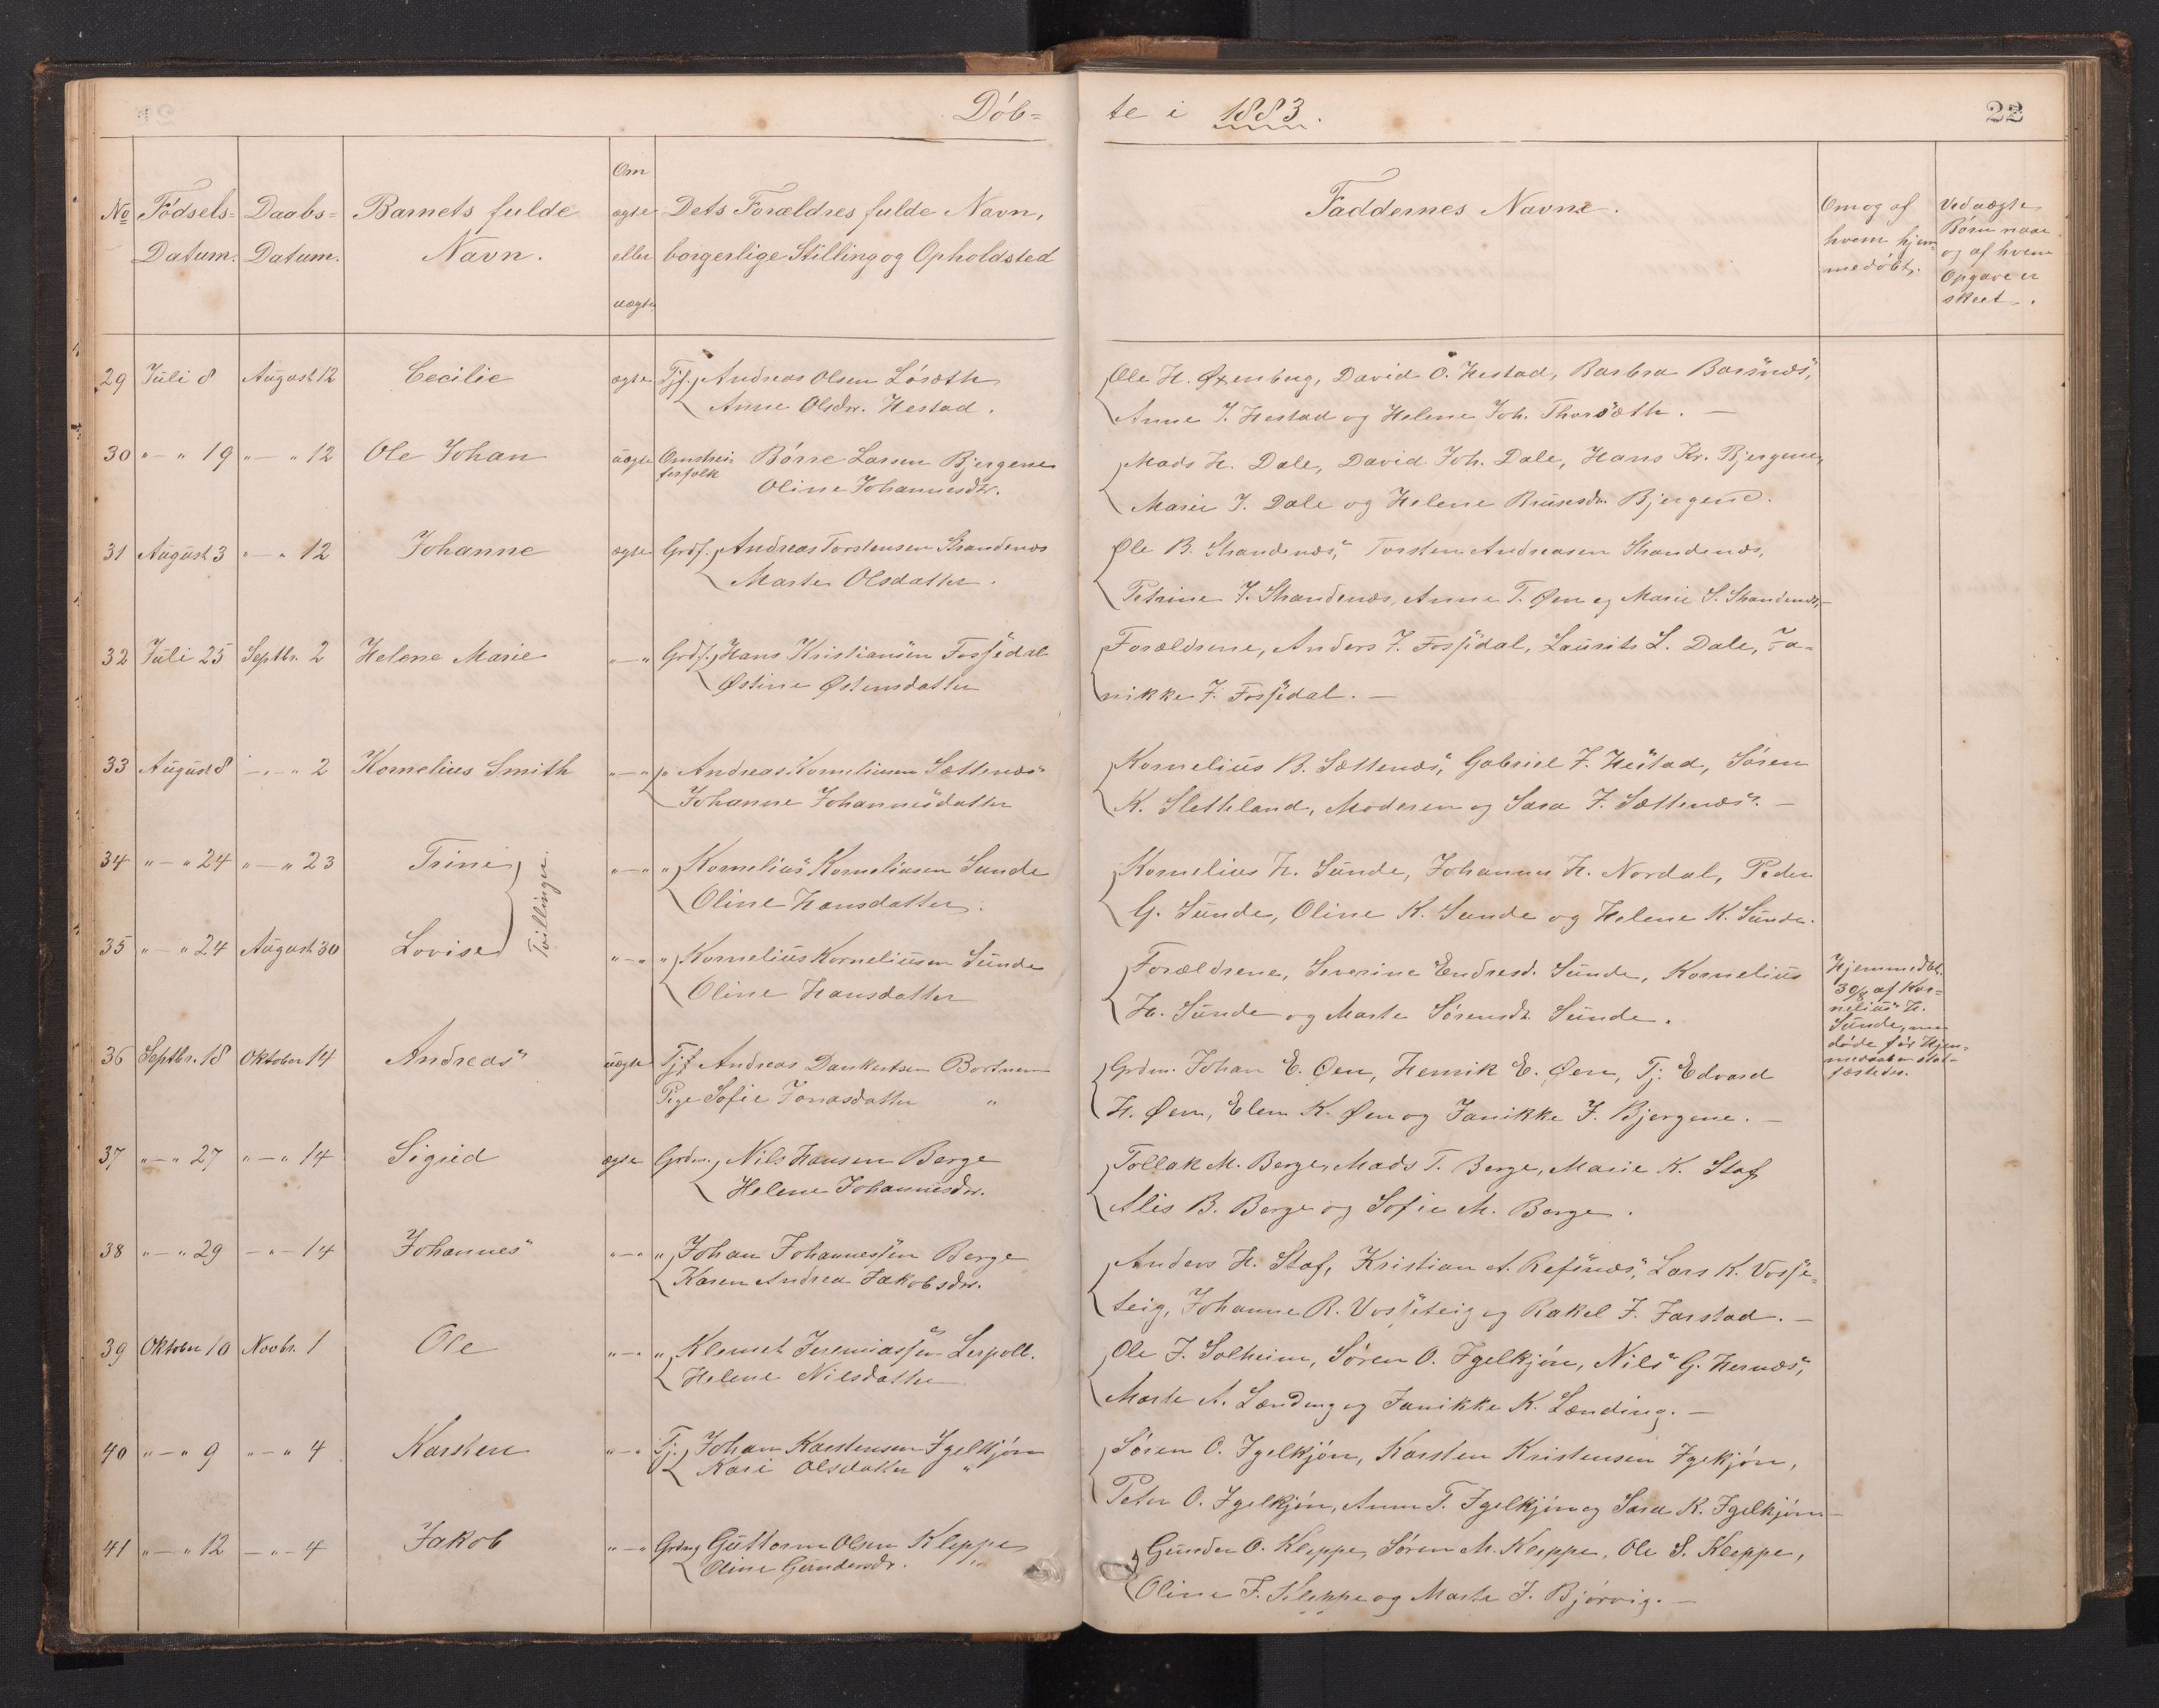 Döb=
te i 1883.
22
No
Födsels=
Datum.
Daabs=
Datum.
Barnets fulde
Navn.
Om
ægte
eller
uægte
Dets Forældres fulde Navn,
borgerlige Stilling og Opholdsted
Faddernes Navne.
Om og af
hvem hjem=
medöbt.
Ved uægte
Börn naar
og af hvem
Opgave er
skeet.
29 Juli 8 August 12 Cecilie ægte Tjf. Andreas Olsen Löseth
Anne Olsdr. Hestad.
Ole H. Øxenberg, David O. Hestad, Barbra Barsnæs,
Anne J. Hestad og Helene Joh. Thorsæth. —
30 " — " 19 " — " 12 Ole Johan uægte Omstrei-
ferfolk
Börre Larsen Bjergene
Oline Johannesdtr.
Mads H. Dale, David Joh. Dale, Hans Kr. Bjergene,
Marie J. Dale og Helene Bruunsdr. Bjergene.
31 August 3 " — " 12 Johanne ægte Grdf. Andreas Torstensen Strandenæs
Marte Olsdatter.
Ole B. Strandenæs, Torsten Andreasen Strandenæs,
Petrine J. Strandenæs, Anne T. Øen og Marie S. Strandenæs. —
32 Juli 25 Septbr. 2 Helene Marie " — " Grdf. Hans Kristiansen Fossedal
Østine Østensdatter
Forældrene, Anders J. Fossedal, Laurits L. Dale, Ja-
nikke J. Fossedal. —
33 August 8 " — " 2 Kornelius Smith " — " " Andreas Korneliusen Sættenæs
Johanne Johannesdatter
Kornelius B. Sættenæs, Gabriel J. Hestad, Sören
K. Sletteland, Moderen og Sara J. Sættenæs. —
34 " — " 24 " — " 23 Trine " — " " Kornelius Korneliusen Sunde
Oline Hansdatter.
Tvillinger.
Kornelius H. Sunde, Johannes H. Nordal, Peder
G. Sunde, Oline K. Sunde og Helene K. Sunde.
35 " — " 24 August 30 Lovise " — " " Kornelius Korneliusen Sunde
Oline Hansdatter
Forældrene, Severine Endresd. Sunde, Kornelius
H. Sunde og Marte Sörensdr. Sunde.
Hjemmedöbt.
30/8 af Kor=
nelius H.
Sunde, men
döde för Hjem=
medaaben stad-
fæstedes.
36 Septbr. 18 Oktober 14 Andreas uægte Tjf. Andreas Dankertsen Bortnen
Pige Sofie Jonasdatter "
Grdm. Johan E. Øen, Henrik E. Øen, Tj. Edvard
H. Øen, Elen K. Øen og Janikke J. Bjergene. —
37 " — " 27 " — " 14 Sigrid ægte Grdm. Nils Hansen Berge
Helene Johannesdr.
Tollak M. Berge, Mads T. Berge, Marie K. Staf,
Alis B. Berge og Sofie M. Berge.
38 " — " 29 — " — 14 Johannes " — " " Johan Johannessen Berge
Karen Andrea Jakobsdr.
Anders H. Staf, Kristian A. Refsnæs, Lars K. Vosse-
teig, Johanne R. Vosseteig og Rakel J. Farstad. —
39 Oktober 10 Novbr. 1 Ole " — " " Klemet Jeremiassen Lerpoll.
Helene Nilsdatter
Ole J. Solheim, Sören O. Igelkjön, Nils G. Hernæs,
Marte A. Lænding og Janikke K. Lænding. —
40 " — " 9 " — " 4 Karsten " — " Tj. Johan Karstensen Igelkjön
Kari Olsdatter "
Sören O. Igelkjön, Karsten Kristensen Igelkjön,
Peter O. Igelkjön, Anne T. Igelkjön og Sara K. Igelkjön —
41 " — " 12 — " — 4 Jakob " — " Grdm. Guttorm Olsen Kleppe
Oline Gundersdr. "
Gunder O. Kleppe, Sören M. Kleppe, Ole S. Kleppe,
Oline F. Kleppe og Marte J. Björvig. —